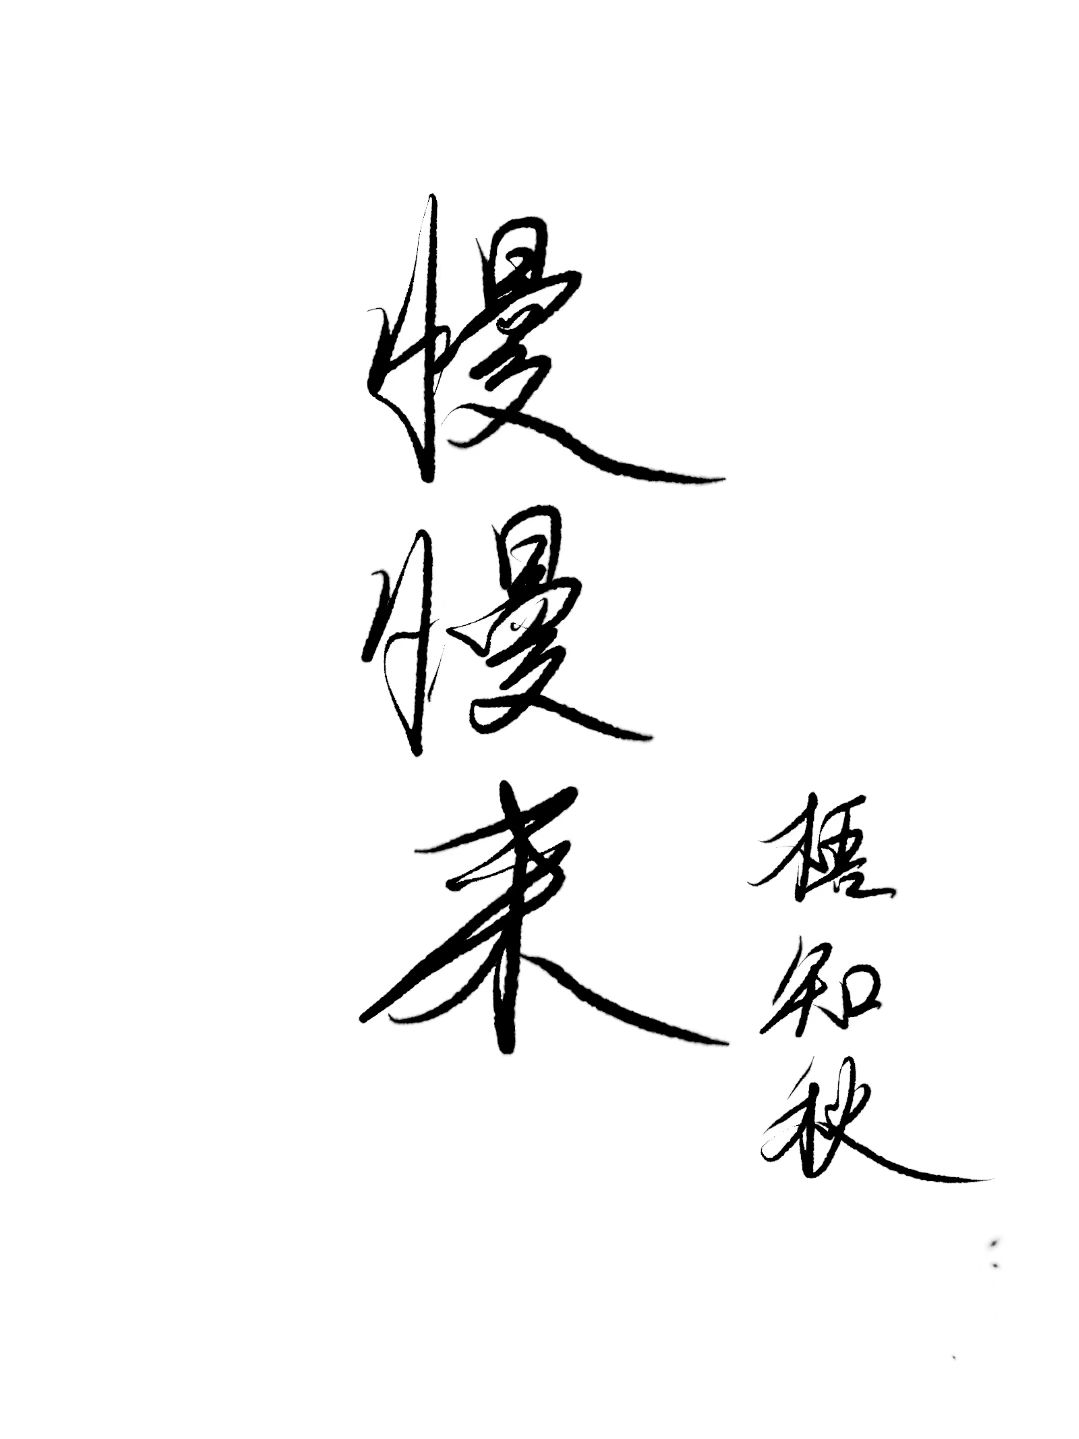 慢慢来
梧知秋